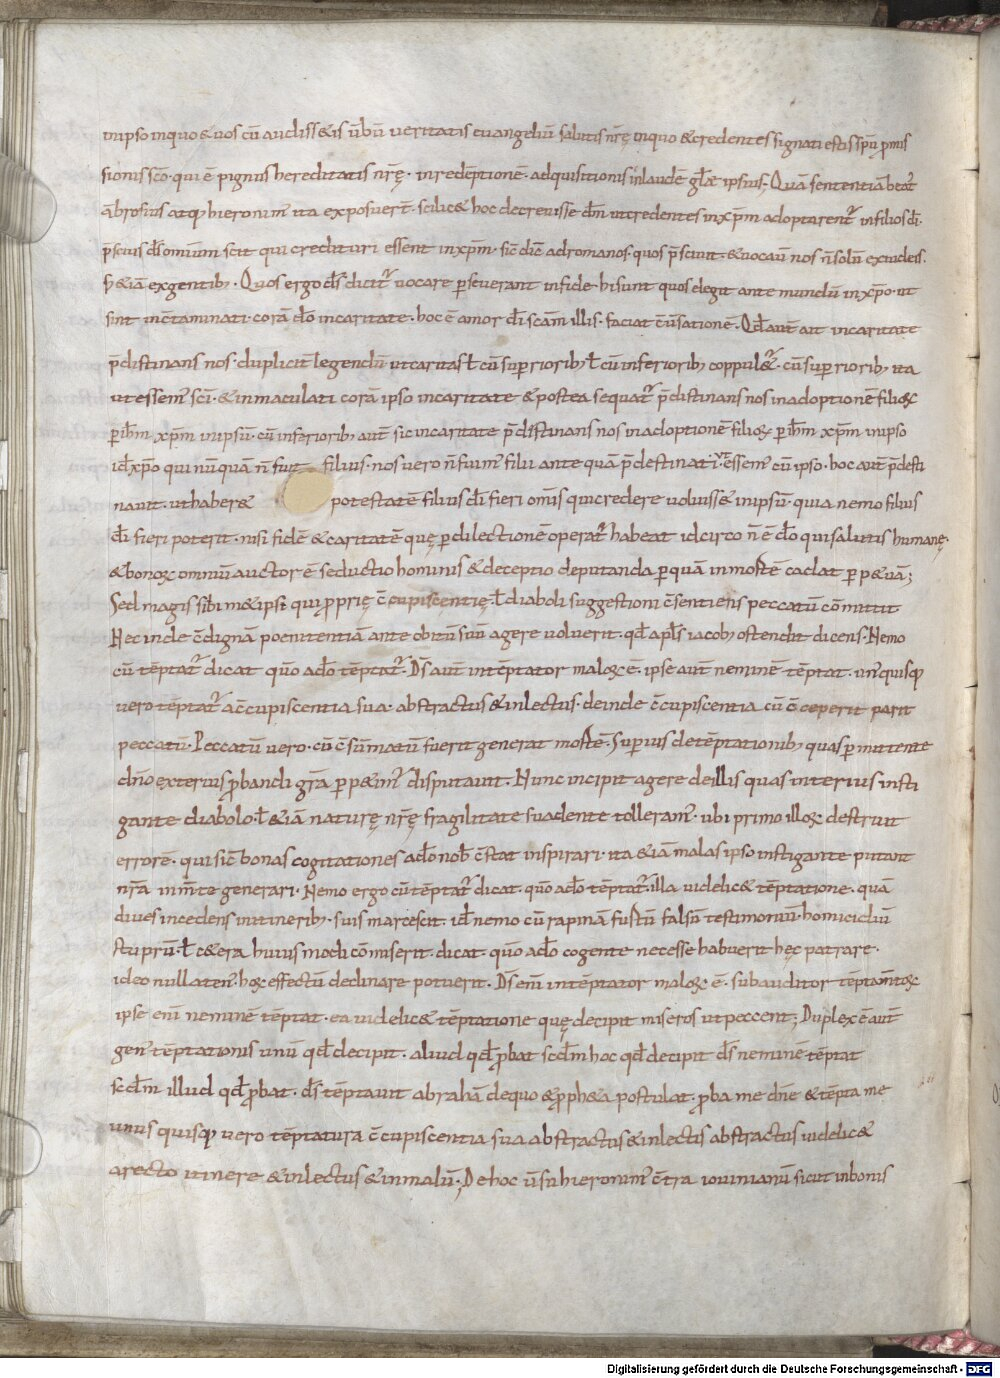 inipso inquo &uos cū audiss&is ūbū ueritatis euangeliū salutis nr̄ę inquo &credentes signati estis sp̄u p̄mis
sionis sc̄o · qui ē pignus hereditatis nr̄ę · inredēptionē · adquisitionis inlaudē gl̄ę ipsius; Quā sententiā beat᷒
ābrosius atq; hieronim᷒ ita exposuer̄t · scilic& hoc decreuisse dm̄ utcredentes inxp̄m adoptarent᷒ infilios dī ·
p̄scius dō omium scit qui credituri essent inxp̄m · sic̄ dic̄ adromanos · quos p̄sciuit · &uocauit nos n̄ solū exiudeis ·
s; &iā exgentib; · Quos ergo ds̄ dicit᷒ uocare p̄seuerant infide · hi sunt quos elegit ante mundū inxp̄o · ut
sint incōtaminati · corā dō incaritate · hoc ē amor dī scām illis · faciat cūsatione · Qd̄ aut̄ ait incaritate
p̄distinans nos · dupliciꝉ legendū utcaritas ꝉ cū supriorib; ꝉ cū inferiorib; coppul&᷒ · cū supriorib; ita
utessem᷒ scī · &inmaculati corā ipso incaritate &postea sequat᷒ p̄distinans nos inadoptionē filioꝝ
p ih̄m xp̄m inipsū · cū inferiorib; aut̄ sic incaritate p̄distinans nos inadoptionē filioꝝ p ih̄m xp̄m inipso
id̄ xp̄o qui nūquā n̄ fuit filius · nos uero n̄ fuim᷒ filii ante quā p̄destinati essem᷒ cū ipso · hoc aut̄ p̄desti
nauit · uthaber& potestatē filius dī fieri omīs quicredere uoluiss& inipsū · quia nemo filius
dī fieri poterit · nisi fidē &caritatē quę p dilectionē operat᷒ habeat idcirco n̄ ē dō qui salutis humanę
&bonoꝝ omniū auctor ē seductio hominis &deceptio deputanda p quā inmortē cadat p p&uā;
Sed magis sibi m&ipsi qui p̄prię cc̄upiscentię · ꝉ diaboli suggestioni cs̄entiens peccatū cōmittit
Nec inde cd̄ignā poenitentiā ante obitū suū agere uoluerit · qd̄ apls̄ iacob; ostendit dicens · Nemo
cū tēptat᷒ dicat quō adō tēptat᷒ · Ds̄ aut̄ intēptator maloꝝ ē · ipse aut̄ neminē tēptat · un᷒quisq;
uero tēptat᷒ acc̄upiscentia sua · abstractus &inlectus · deinde cc̄upiscentia cū cc̄eperit parit
peccatū · Peccatū uero · cū cs̄ūmatū fuerit generat mortē · Superius detēptationib; quas p mittente
dn̄o exterius p̄bandi gr̄a p p&im᷒ disputauit · Nunc incipit agere deillis quas interius insti
gante diabolo · ꝉ &iā naturę nr̄ę fragilitate suadente tolleram᷒ · ubi primo illoꝝ destruit
errorē · qui sic̄ bonas cogitationes adō nob̄ cs̄tat inspirari · ita &iā malas ipso instigante putant
nr̄a inm̄te generari · Nemo ergo cū tēptat᷒ dicat · quō adō tēptat᷒ · illa uidelic& tēptatione · quā
diues incedens initinerib; · suis marcescit · id̄ nemo cū rapinā furtū falsū testimoniū · homicidiū
stuprū · ꝉ c&era huius modi cōmiserit · dicat · quō adō cogente necesse habuerit hęc patrare ·
ideo nullaten᷒ · hoꝝ effectū declinare potuerit · Ds̄ enī intēptator maloꝝ ē · subauditor tēptam̄toꝝ
ipse enī neminē tēptat · ea uidelic& tēptatione quę decipit miseros utpeccent; Duplex ē aut̄
gen᷒ tēptationis unū qd̄ decipit · aliud qd̄ p̄bat scd̄m hoc qd̄ decipit ds̄ neminē tēptat
scd̄m illud qd̄ p̄bat · ds̄ tēptauit abrahā dequo &p̄ph&a postulat · p̄ba me dn̄e &tēpta me
unus quisq; uero tēptatura cc̄upiscentia sua abstractus &inlectis abstractus uidelic&
arecto itinere &inlectus &inmalū; De hoc ūsu hieronim᷒ ct̄ra iouinianū sicut inbonis
Digitalisierung gefördert durch die Deutsche Forschungsgemeinschaft - DFG